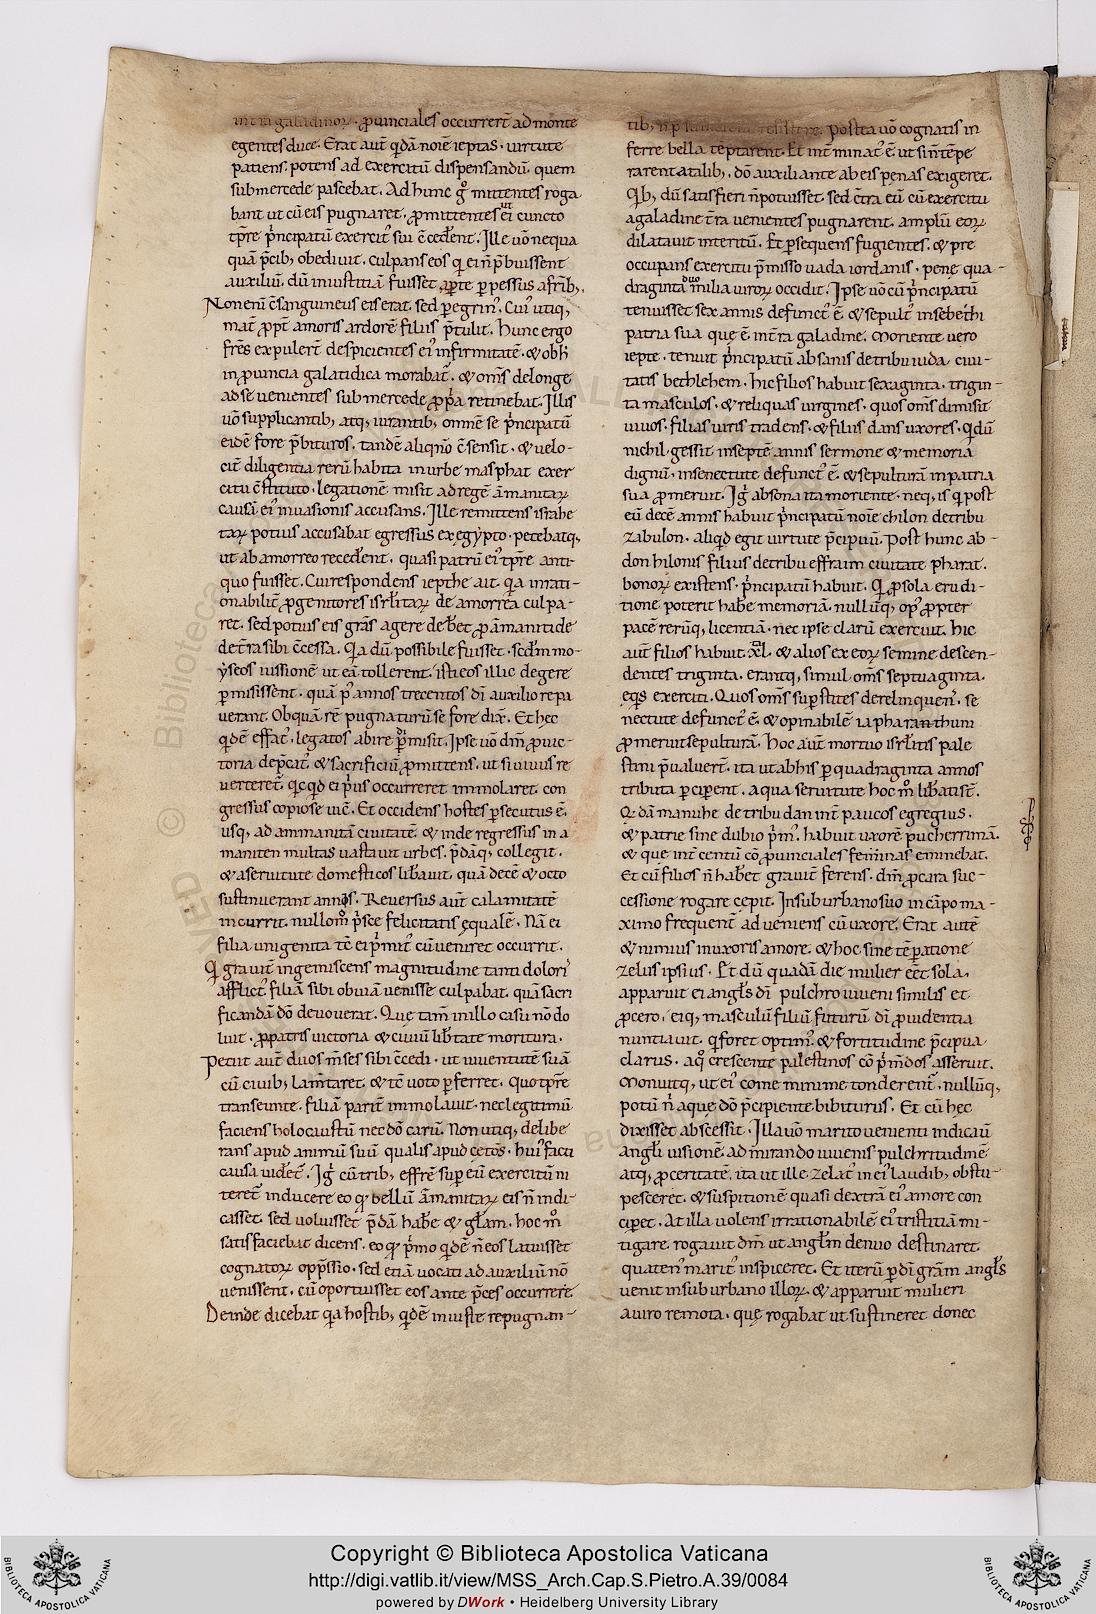 intra galadinoꝝ. ꝓuinciales occurrerꝉ ad monte
egentes duce. Erat aut̄ qdā noīe ieptas. uirtute
patiens. potens ad exercitū dispensandū. quem
sub mercede pascebat. Ad hunc g̊ mittentes roga
bant ut cū eis pugnaret. ꝓmittentes ei ut cuncto
tp̄re p̄ncipatū exercit᷒ sui c̄cederent. Ille uō nequa
quā p̄cib; obediuit. culpans eos q̇ ei n̄ p̄buissent
auxiliū. dū iniustitiā fuisset apte ꝑpessus a frīb;.
Non enī c̄sanguineus eis erat. sed peregrin᷒. Cui᷒ utiq;
mat̄ ꝓpt̄ amoris ardorē filius p̄tulit. Hunc ergo
fr̄es expulerт̄ despicientes ei᷒ infirmitatē. & ob h̄
in ꝓuincia galatidica morabat̄. & om̄s de longe
ad se uenientes sub mercede ꝓp̄a retinebat. Illis
uō supplicantib; atq; iurantib; omnē se p̄ncipatū
eidē fore p̄bituros. tandē aliqn̄o c̄sensit. & uelo-
cit̄ diligentia rerū habita in urbe masphat exer
citu c̄stituto. legationē misit ad regē āmanitaꝝ
causā ei᷒ inuasionis accusans. Ille remittens israhe
taꝝ potius accusabat egressus ex egypto. petebatq;
ut ab amorreo recederent. quasi patrū ei᷒ tp̄re anti-
quo fuisset. Cui respondens iepthe ait. q̇a irrati-
onabilit̄ ꝓgenitores isrl̄itaꝝ de amorrea culpa-
ret. sed potius eis gr̄as agere deberet ꝓ āmanitide
de t̄ra sibi c̄cessa. Q̇a dū possibile fuisset. scd̄m mo-
yseos iussionē ut eā tollerent. isti eos illic degere
ꝑmisissent. quā p᷒ annos trecentos dī auxilio repa
uerant. Ob quā rē pugnaturū se fore dix̄. Et hec
q̇dē effat᷒. legatos abire ꝑmisit. Ipse uō dm̄ ꝓ uic-
toria dep̄cat᷒. & sacrificiū ꝓmittens. ut si uiuus re
uerteret̄. q̇cq̇d ei p̄us occurreret immolaret. con
gressus copiose uic̄. Et occidens hostes ꝑsecutus ē.
usq; ad ammanitā ciuitatē. & inde regressus in a
maniten multas uastauit urbes. p̄dāq; collegit.
& a seruitute domesticos liberauit. quā decē & octo
sustinuerant annos. Reuersus aut̄ calamitatē
incurrit. nullom̊ p̄sce felicitatis ęqualē. Nā ei
filia unigenita tc̄ ei p̄mit᷒ cū ueniret occurrit.
Q̇ grauit̄ ingemiscens magnitudine tanti dolori
afflict᷒. filiā sibi obuiā uenisse culpabat. quā sacri
ficandā dō deuouerat. Que tam̄ in illo casu n̄ do
luit. ꝓ patris uictoria & ciuiū lib̄tate moritura.
Petiit aut̄ duos m̄ses sibi c̄cedi. ut iuuentutē suā
cū ciuib; lam̄taret. & tc̄ uoto ꝑferret. quo tp̄re
transeunte. filiā parit̄ immolauit. nec legitimū
faciens holocaustū nec dō carū. Non utiq; delibe
rans apud animū suū qualis apud cęt̄os. hui᷒ facti
causa uideret̄. Ig̊ cū trib; effrē sup eū exercitū ni
teret̄ inducere eo q᷒ bellū āmanitaꝝ eis n̄ indi-
casset. sed uoluisset p̄dā habere & gl̄am. hoc m̊
satisfaciebat dicens. eo q᷒ p̄mo q̇dē n̄ eos latuisset
cognatoꝝ opp̄ssio. sed etiā uocati ad auxiliū nō
uenissent. cū oportuisset eos ante p̄ces occurrere.
Deinde dicebat q̇a hostib; q̇dē iniuste repugnan-
tib; resistere. Postea uō cognatis in
ferre bella temptarent. Et int̄minat᷒ ē. ut si n̄ tēpe
rarent a talib;. dō auxiliante ab eis pęnas exigeret.
Q̇b; dū satisfieri n̄ potuisset. sed c̄tra eū cū exercitu
a galadine t̄ra uenientes pugnarent. amplū eoꝝ
dilatauit interitū. Et ꝑsequens fugientes. & pre
occupans exercitu p̄misso uada iordanis. pene qua-
draginta duo milia uiroꝝ occidit. Ipse uō cū p̄ncipatū
tenuisset sex annis defunct᷒ ē. & sepult᷒ in sebethi
patria sua que ē intra galadine. Moriente uero
iepte. tenuit p̄ncipatū absanis de tribu iuda ciui-
tatis bethlehem. hic filios habuit sexaginta. trigin-
ta masculos. & reliquas uirgines. quos om̄s dimisit
uiuos. filias uiris tradens. & filiis dans uxores. Q̇ dū
nichil gessit in septē annis sermone & memoria
dignū. in senectute defunct᷒ ē. & sepulturā in patria
sua ꝓmeruit. Ig̊ absona ita moriente. neq; is q̇ post
eū decē annis habuit p̄ncipatū noīe chilon de tribu
zabulon. aliq̇d egit uirtute p̄cipuū. Post hunc ab-
don hilonis filius de tribu effraim ciuitate pharat.
bonoꝝ existens. p̄ncipatū habuit. Q̇ ꝓ sola erudi-
tione poterit habere memoriā. nullūq; op᷒ ꝓpter
pacē rerūq; licentiā. nec ipse clarū exercuit. Hic
aut̄ filios habuit xl. & alios ex eoꝝ semine descen-
dentes triginta. erantq; simul om̄s septuaginta.
eq̇s exerciti. Quos om̄s suꝑstites derelinquens. se
nectute defunct᷒ ē. & opinabilē ia pharanthuni
ꝓmeruit sepulturā. Hoc aut̄ mortuo isrl̄itis pale
stini p̄ualuert̄. ita ut ab his ꝑ quadraginta annos
tributa ꝑciperent. a qua seruitute hoc m̊ liberati st̄.
Q̇dā manuhe de tribu dan int̄ paucos egregius.
& patrie sine dubio p̄m᷒. habuit uxorē pulcherrimā.
& que int̄ centū cō ꝓuinciales feminas eminebat.
Et cū filios n̄ haberet grauit̄ ferens. dm̄ ꝓ cara suc-
cessione rogare cępit. In suburbano suo in cāpo ma-
ximo frequent̄ adueniens cū uxore. Erat autē
& nimius in uxoris amore. & hoc sine tēperatione
zelus ipsius. Et dū quadā die mulier eēt sola.
apparuit ei angl̄s dī pulchro iuueni similis et
ꝓcero. eiq; masculū filiū futurū dī ꝓuidentia
nuntiauit. q̇ foret optim᷒. & fortitudine p̄cipua
clarus. a q̊ crescente palestinos cō p̄m̄dos asseruit.
Monuitq; ut ei᷒ come minime tonderent̄. nullūq;
potū n̄ aque dō p̄cipiente bibiturus. Et cū hęc
dixisset abscessit. Illa uō marito uenienti indicauit
angl̄i uisionē. admirando iuuenis pulchritudinē
atq; ꝓceritatē. ita ut ille zelat᷒ in ei᷒ laudib; obstu-
pesceret. & suspitionē quasi dextrā ei᷒ amore con
ciperet. At illa uolens irrationabilē ei᷒ tristitiā mi-
tigare. rogauit dm̄ ut angl̄m denuo destinaret.
quaten᷒ marit᷒ inspiceret. Et iterū ꝑ dī grām angl̄s
uenit in suburbano illoꝝ. & apparuit mulieri
a uiro remota. quę rogabat ut sustineret donec
Copyright © Biblioteca Apostolica Vaticana
http://digi.vatlib.it/view/MSS_Arch.Cap.S.Pietro.A.39/0084
powered by DWork • Heidelberg University Library